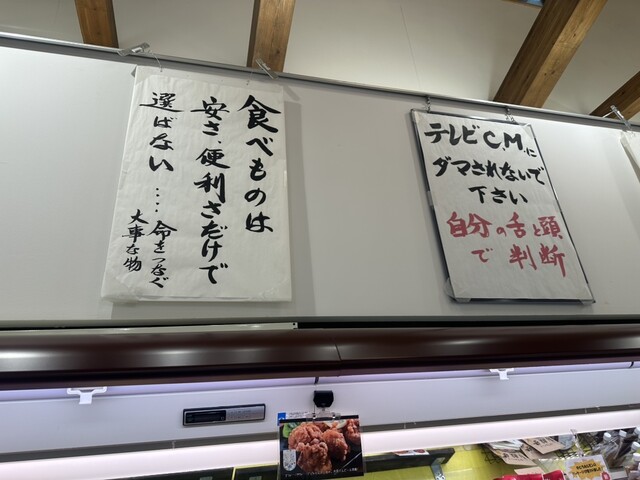 食べものは
安さ、便利さだけで
選ばない....
命をつなぐ
大事な物
テレビCMに
ダマされないで
下さい
自分の舌と頭
で判断